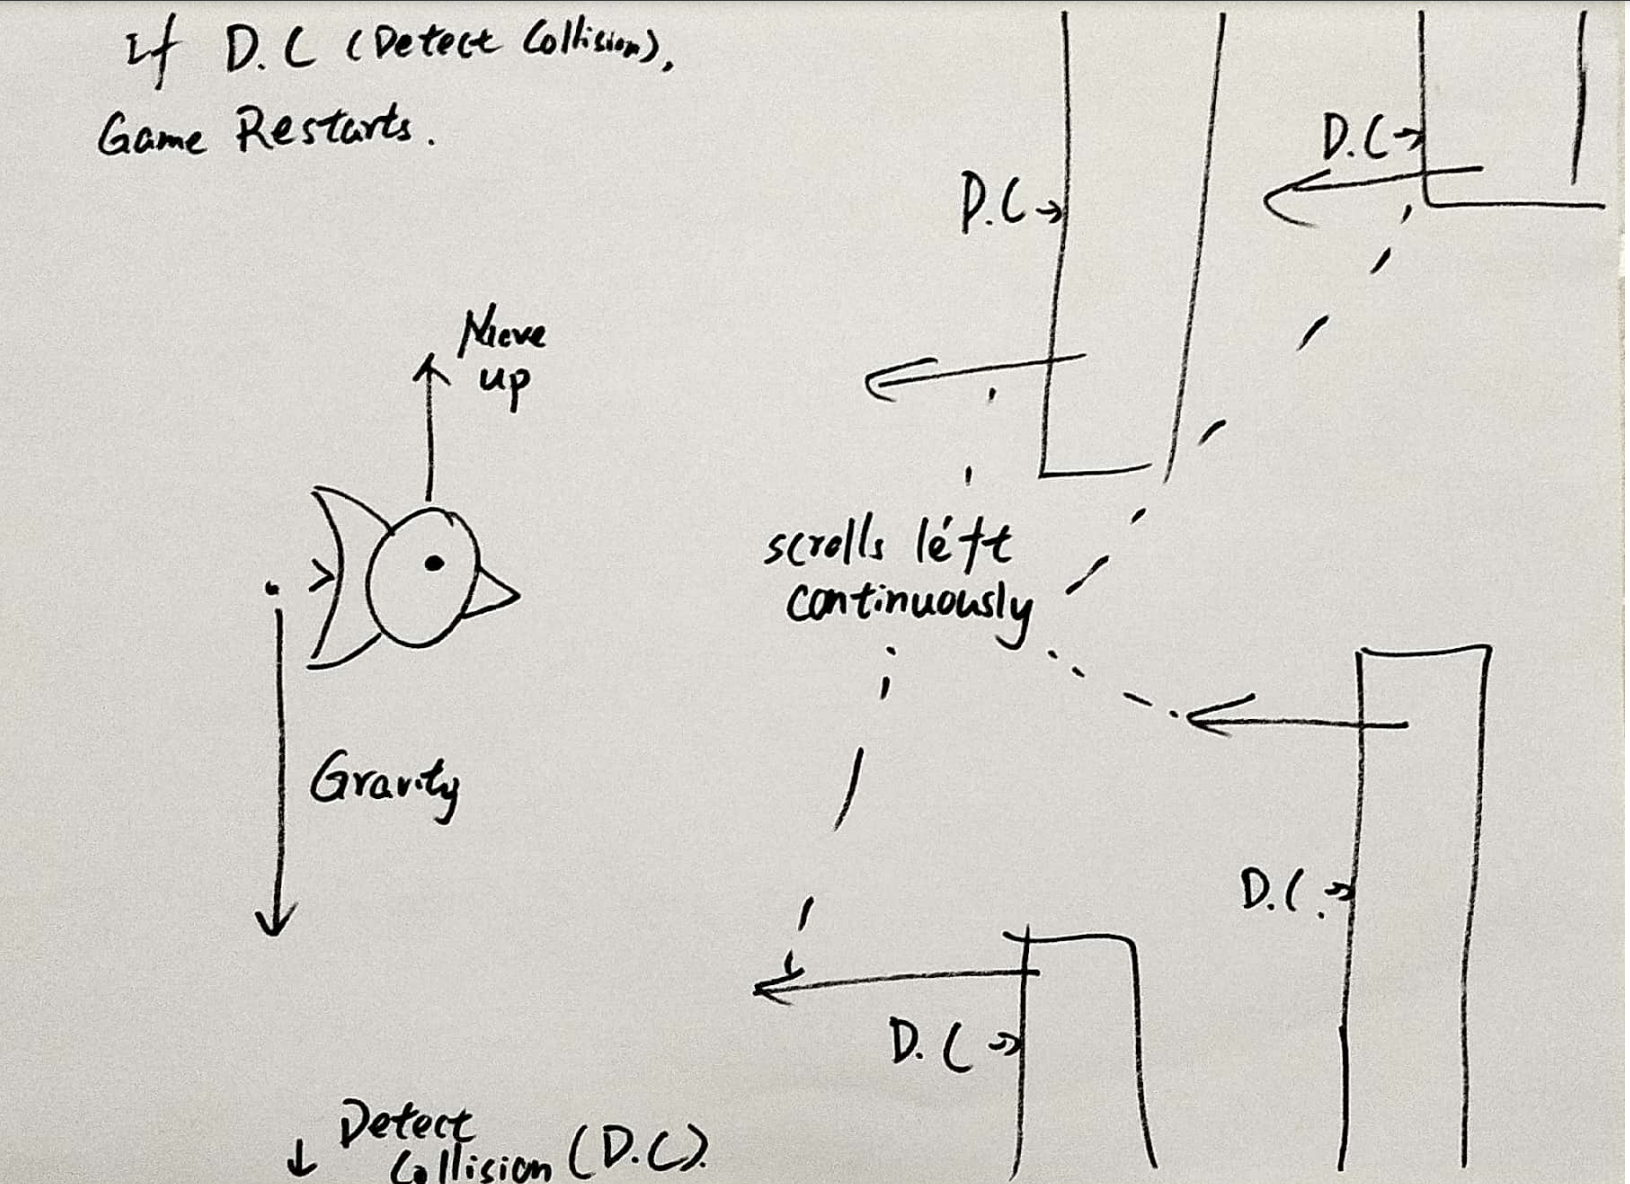 If D.C (Detect Collision),
Game Restarts.
D.C
D.C
Move
up
scrolls left
continuously
Gravity
D.C.
D.C
Detect
Collision (D.C).